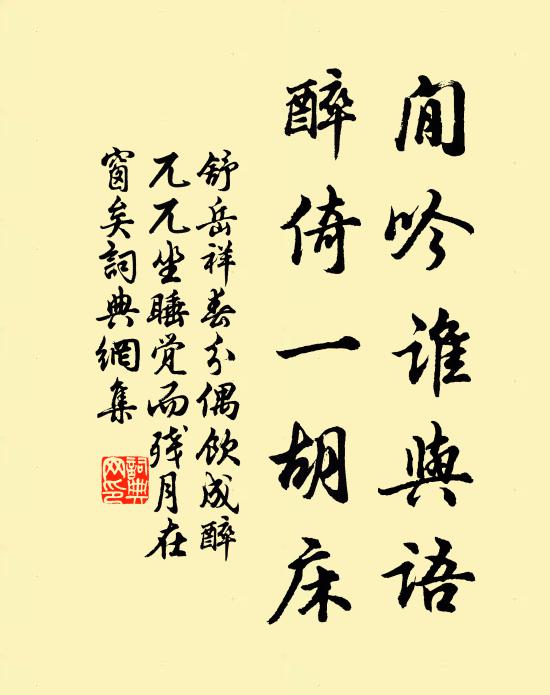 閒吟誰與語
醉倚一胡床
舒岳祥春分偶飲成醉
兀兀坐睡覚而残月在
窗矣詞典網集
詞典
网印